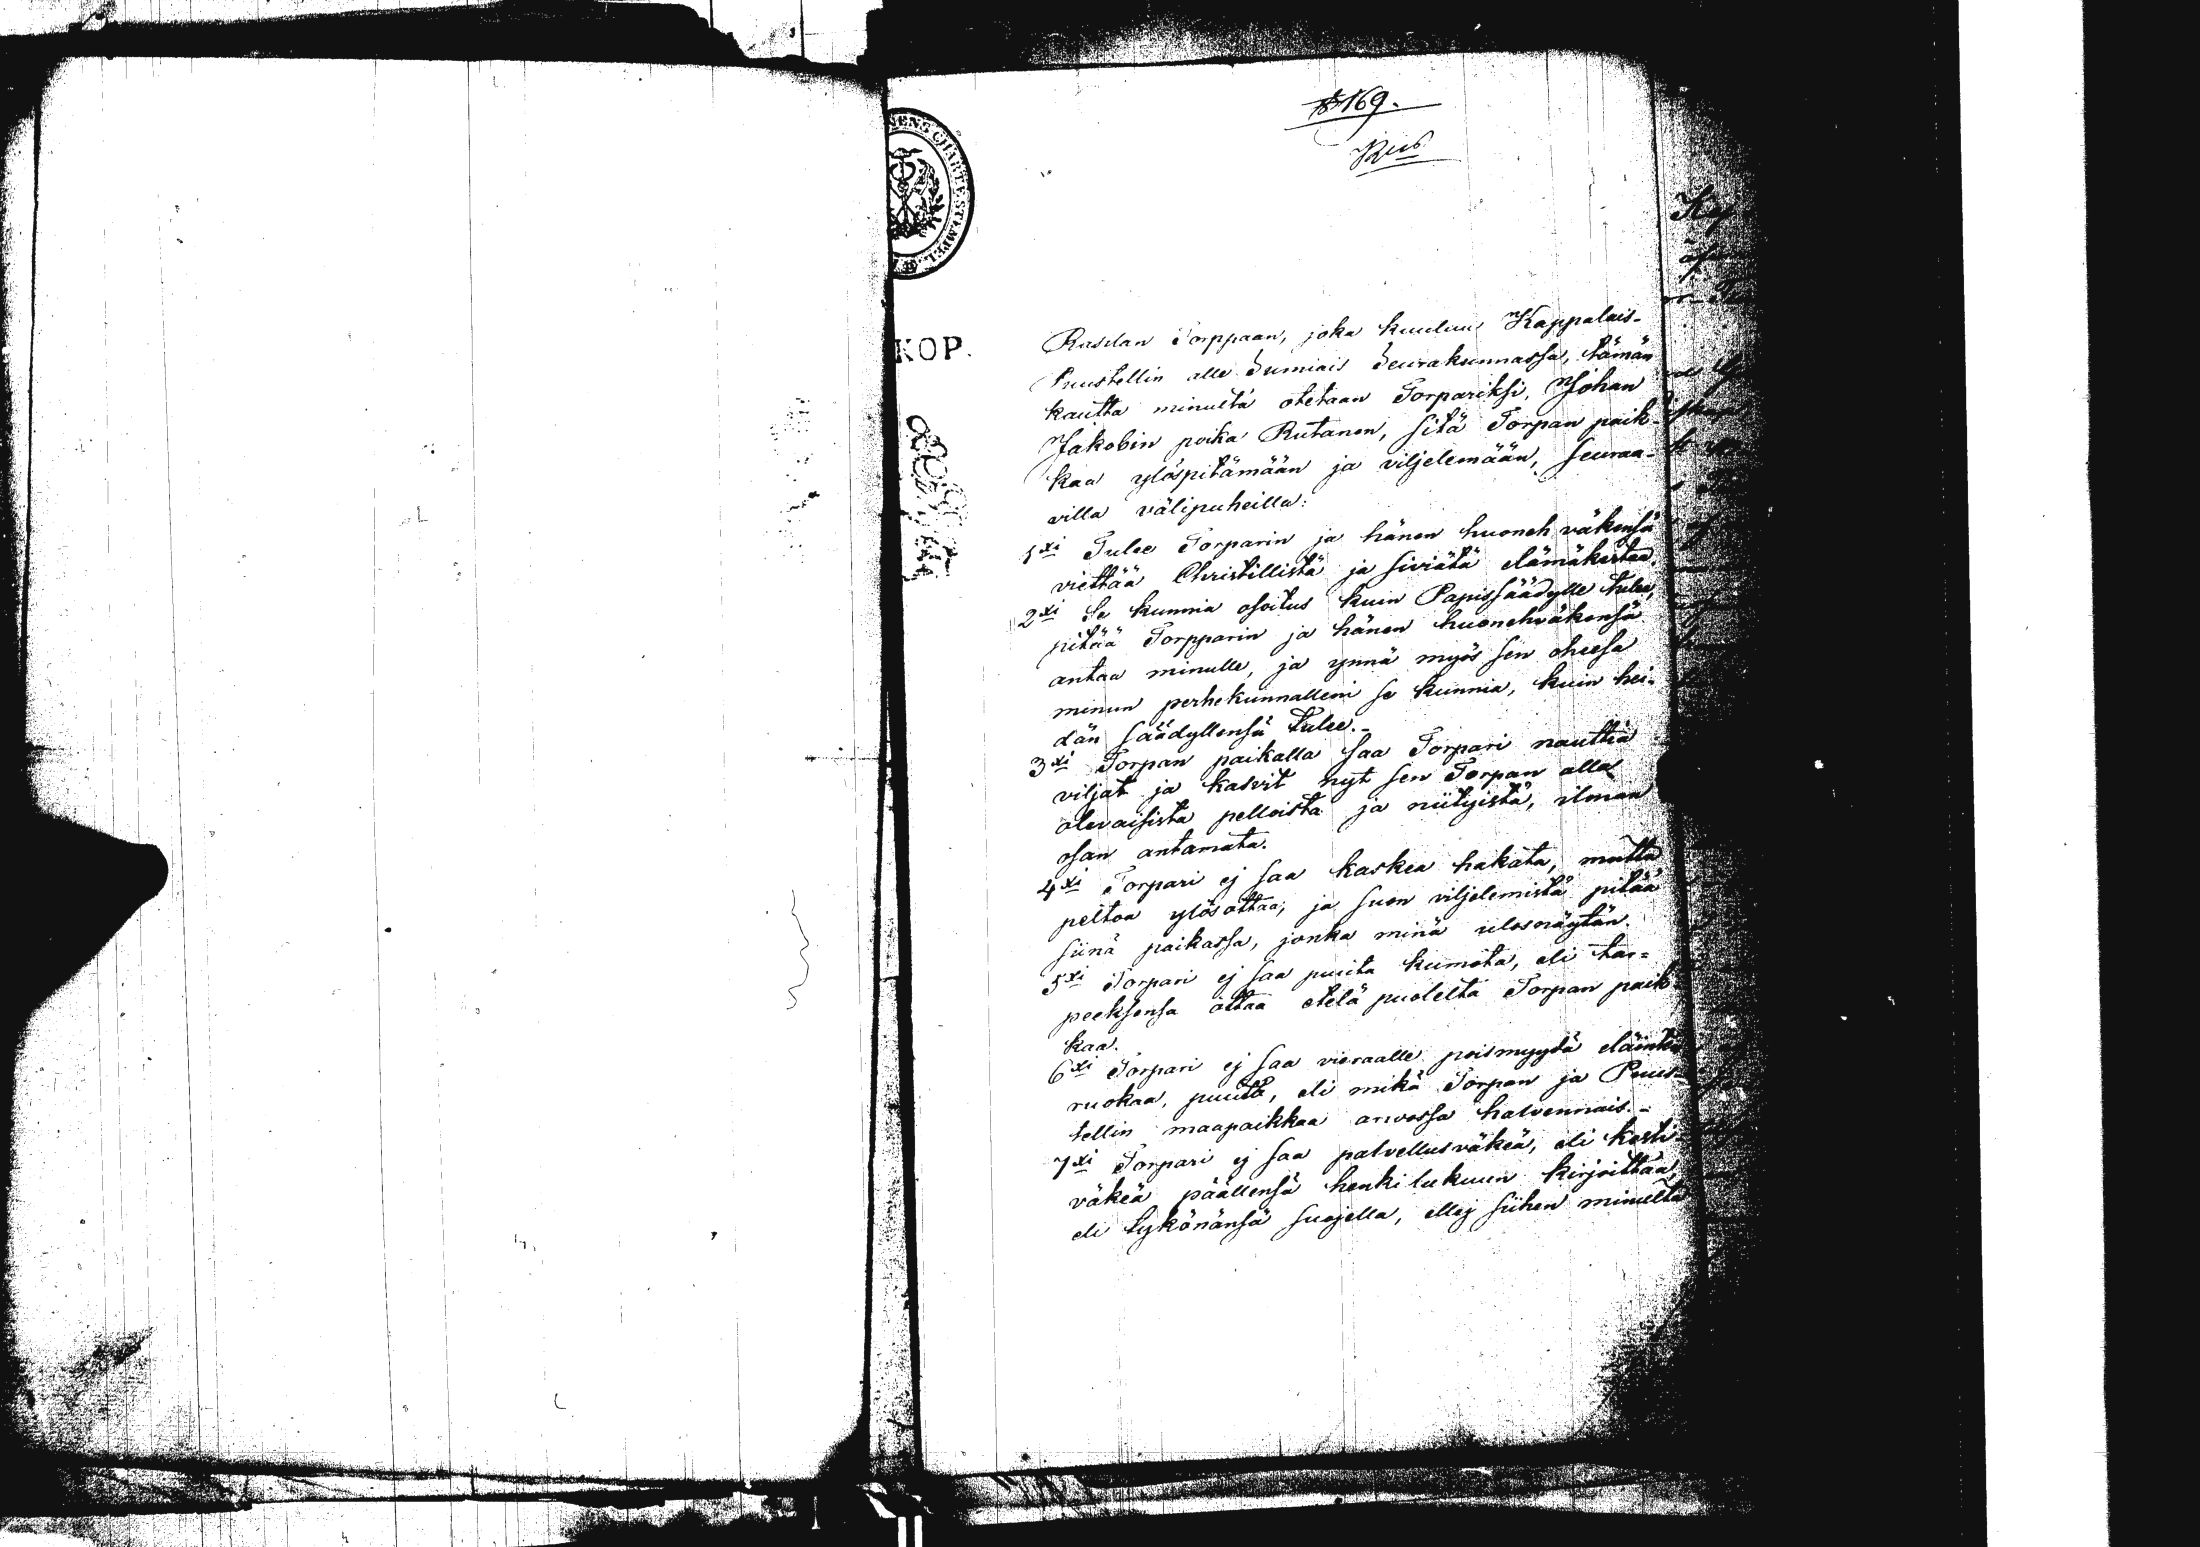 169.
KOP.
Rasilan Torppaan, joka kuuluu Kappalais-
Puustellin alle Sumiais Seurakunnassa, tämän
kautta minulta otetaan Torpariksi, Johan
Jakobin poika Rutanen, sitä Torpan paik-
kaa ylöspitämään ja viljelemään, seuraa-
villa välipuheilla:
1xi Tulee Torparin ja hänen huoneh väkensä
viettää Christillistä ja siviätä elämäkertaa.
2xi Se kunnia osoitus kuin Papissäädylle tulee,
pitää Torpparin ja hänen huonehväkensä
antaa minulle, ja ynnä myös sen ohessa
minun perhekunnalleni se kunnia, kuin hei-
dän säädyllensä tulee.-
3xi Torpan paikalla saa Torpari nauttia
viljat ja kasvit nyt sen Torpan alla
olevaisista pelloista ja niityistä, ilman
osan antamata.
4xi Torpari ej saa kaskea hakata, mutta
peltoa ylösottaa, ja suon viljelemistä pitää
siinä paikassa, jonka minä ulosnäytän.
5xi Torpari ej saa puuta kumota, eli tar=
peeksensa ottaa etelä puolelta Torpan paik-
kaa.
6xi Torpari ej saa vieraalle poismyydä eläinten
ruokaa, puuta, eli mikä Torpan ja Puus-
tellin maapaikkaa arvossa halvennais.-
7xi Torpari ej saa palvellusväkeä, eli kesti-
väkeä päällensä henkilukuun kirjoittaa,
eli tykönänsä suojella, ellej siihen minulta